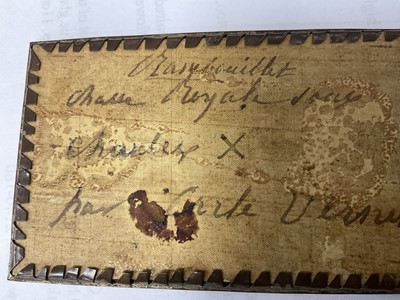 Rambouillet
chasse Royale sous
Charles X
par Carle Vernet